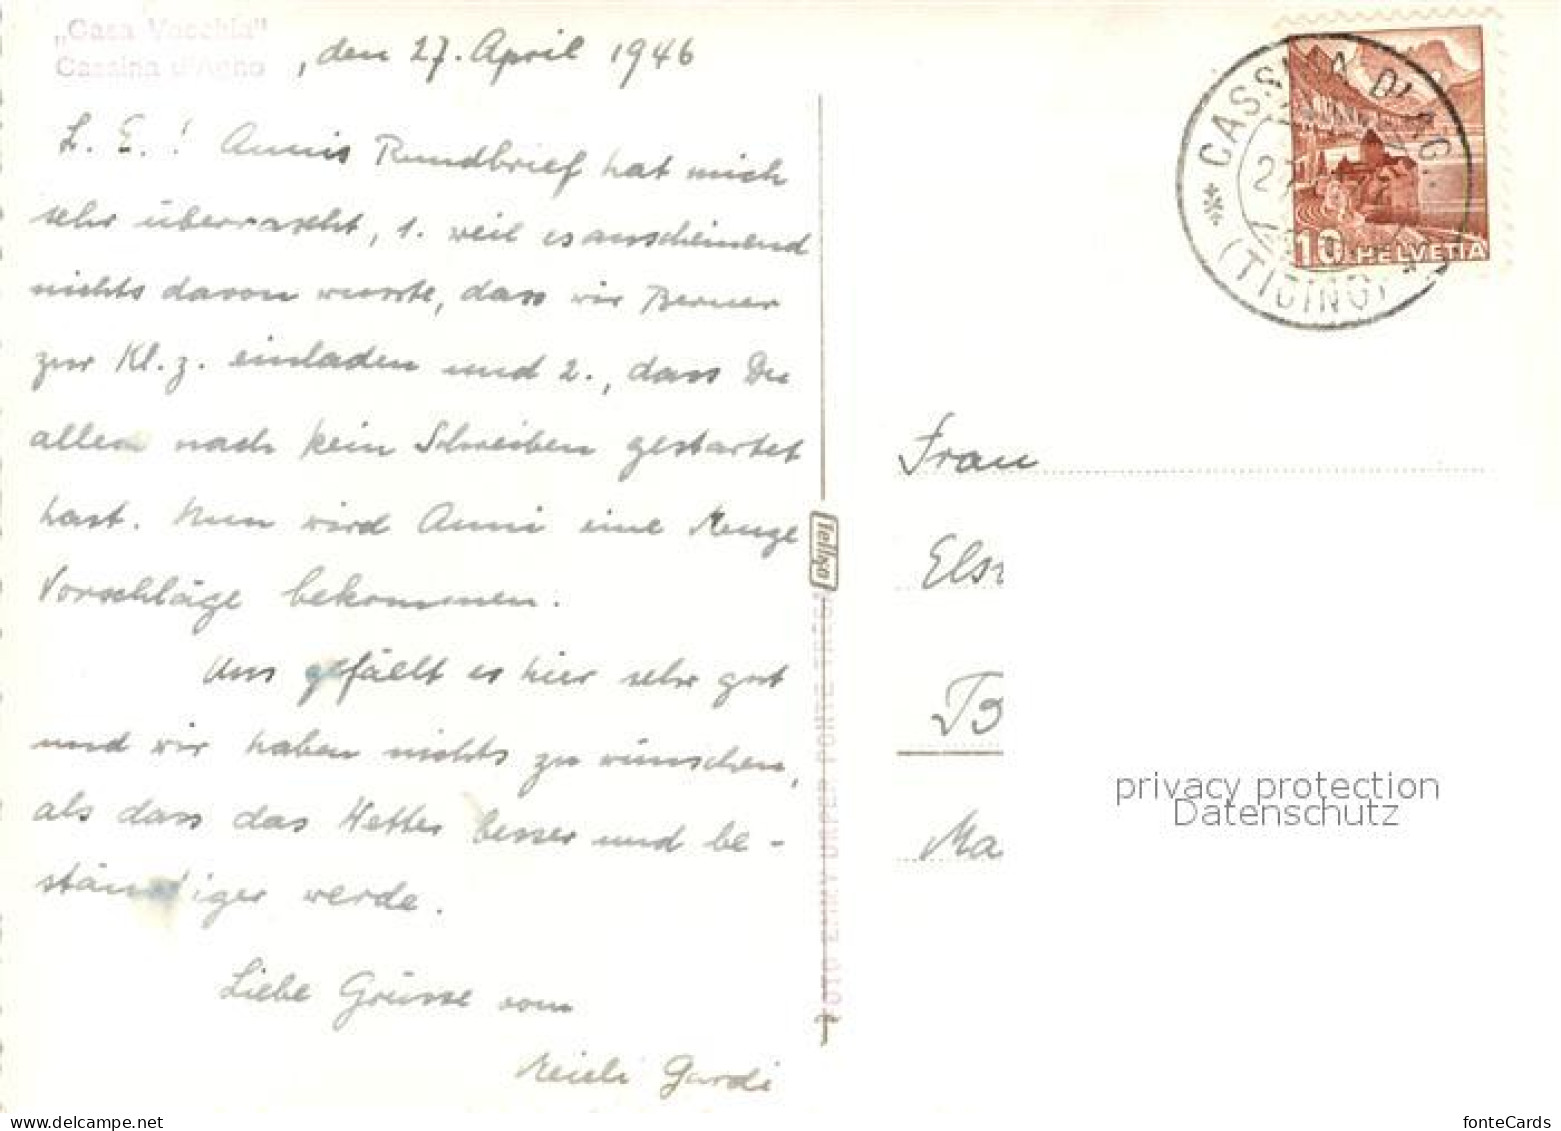 „Casa Vecchia"
Cassina d'Agno , den 27. April 1946
L. E.! Annis Rundbrief hat mich
sehr überrascht, 1. weil es anscheinend
nichts davon wusste, dass wir Berner
zur Kl. z. einladen und 2., dass Du
allem nach kein Schreiben gestartet
hast. Nun wird Anni eine Menge
Vorschläge bekommen.
Uns gefällt es hier sehr gut
und wir haben nichts zu wünschen,
als dass das Wetter besser und be-
ständiger werde.
Liebe Grüsse vom
Gardi
Tellko
FOTO EMMY URPER PONTE TRESA
CASSINA D'AG.
27
(TICINO)
10 HELVETIA
Frau
Els
B
Ma
privacy protection
Datenschutz
www.delcampe.net
fonteCards